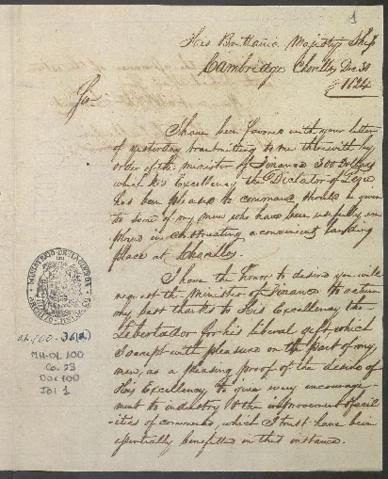 1
His Brittanic Majesty's Ship
Cambridge Chorillos Dec 30
1824
Sir
I have been favored with your letter
of yesterday transmitting to me therewith by
order of the minister of Finance 300 Dollars
which His Excellency the Dictator of
has been pleased to command should be given
to some of my men who have been usefully em
ployed in constructing a convenient landing
place at Chorillos.
I have the honor to desire you will
request the Minister of Finance to return
my best thanks to His Excellency the
Libertador for his liberal gift which
I accept with pleasure on the part of my
men, as a pleasing proof of the desire of
His Excellency to give every encourage
ment to industry & the improvement of facil
-ities of commerce, which I trust have been
essentially benefited in this instance.
MINISTERIO DE HACIENDA
36(a)
MH-OL 100
Ca. 23
Doc 100
Fol 1